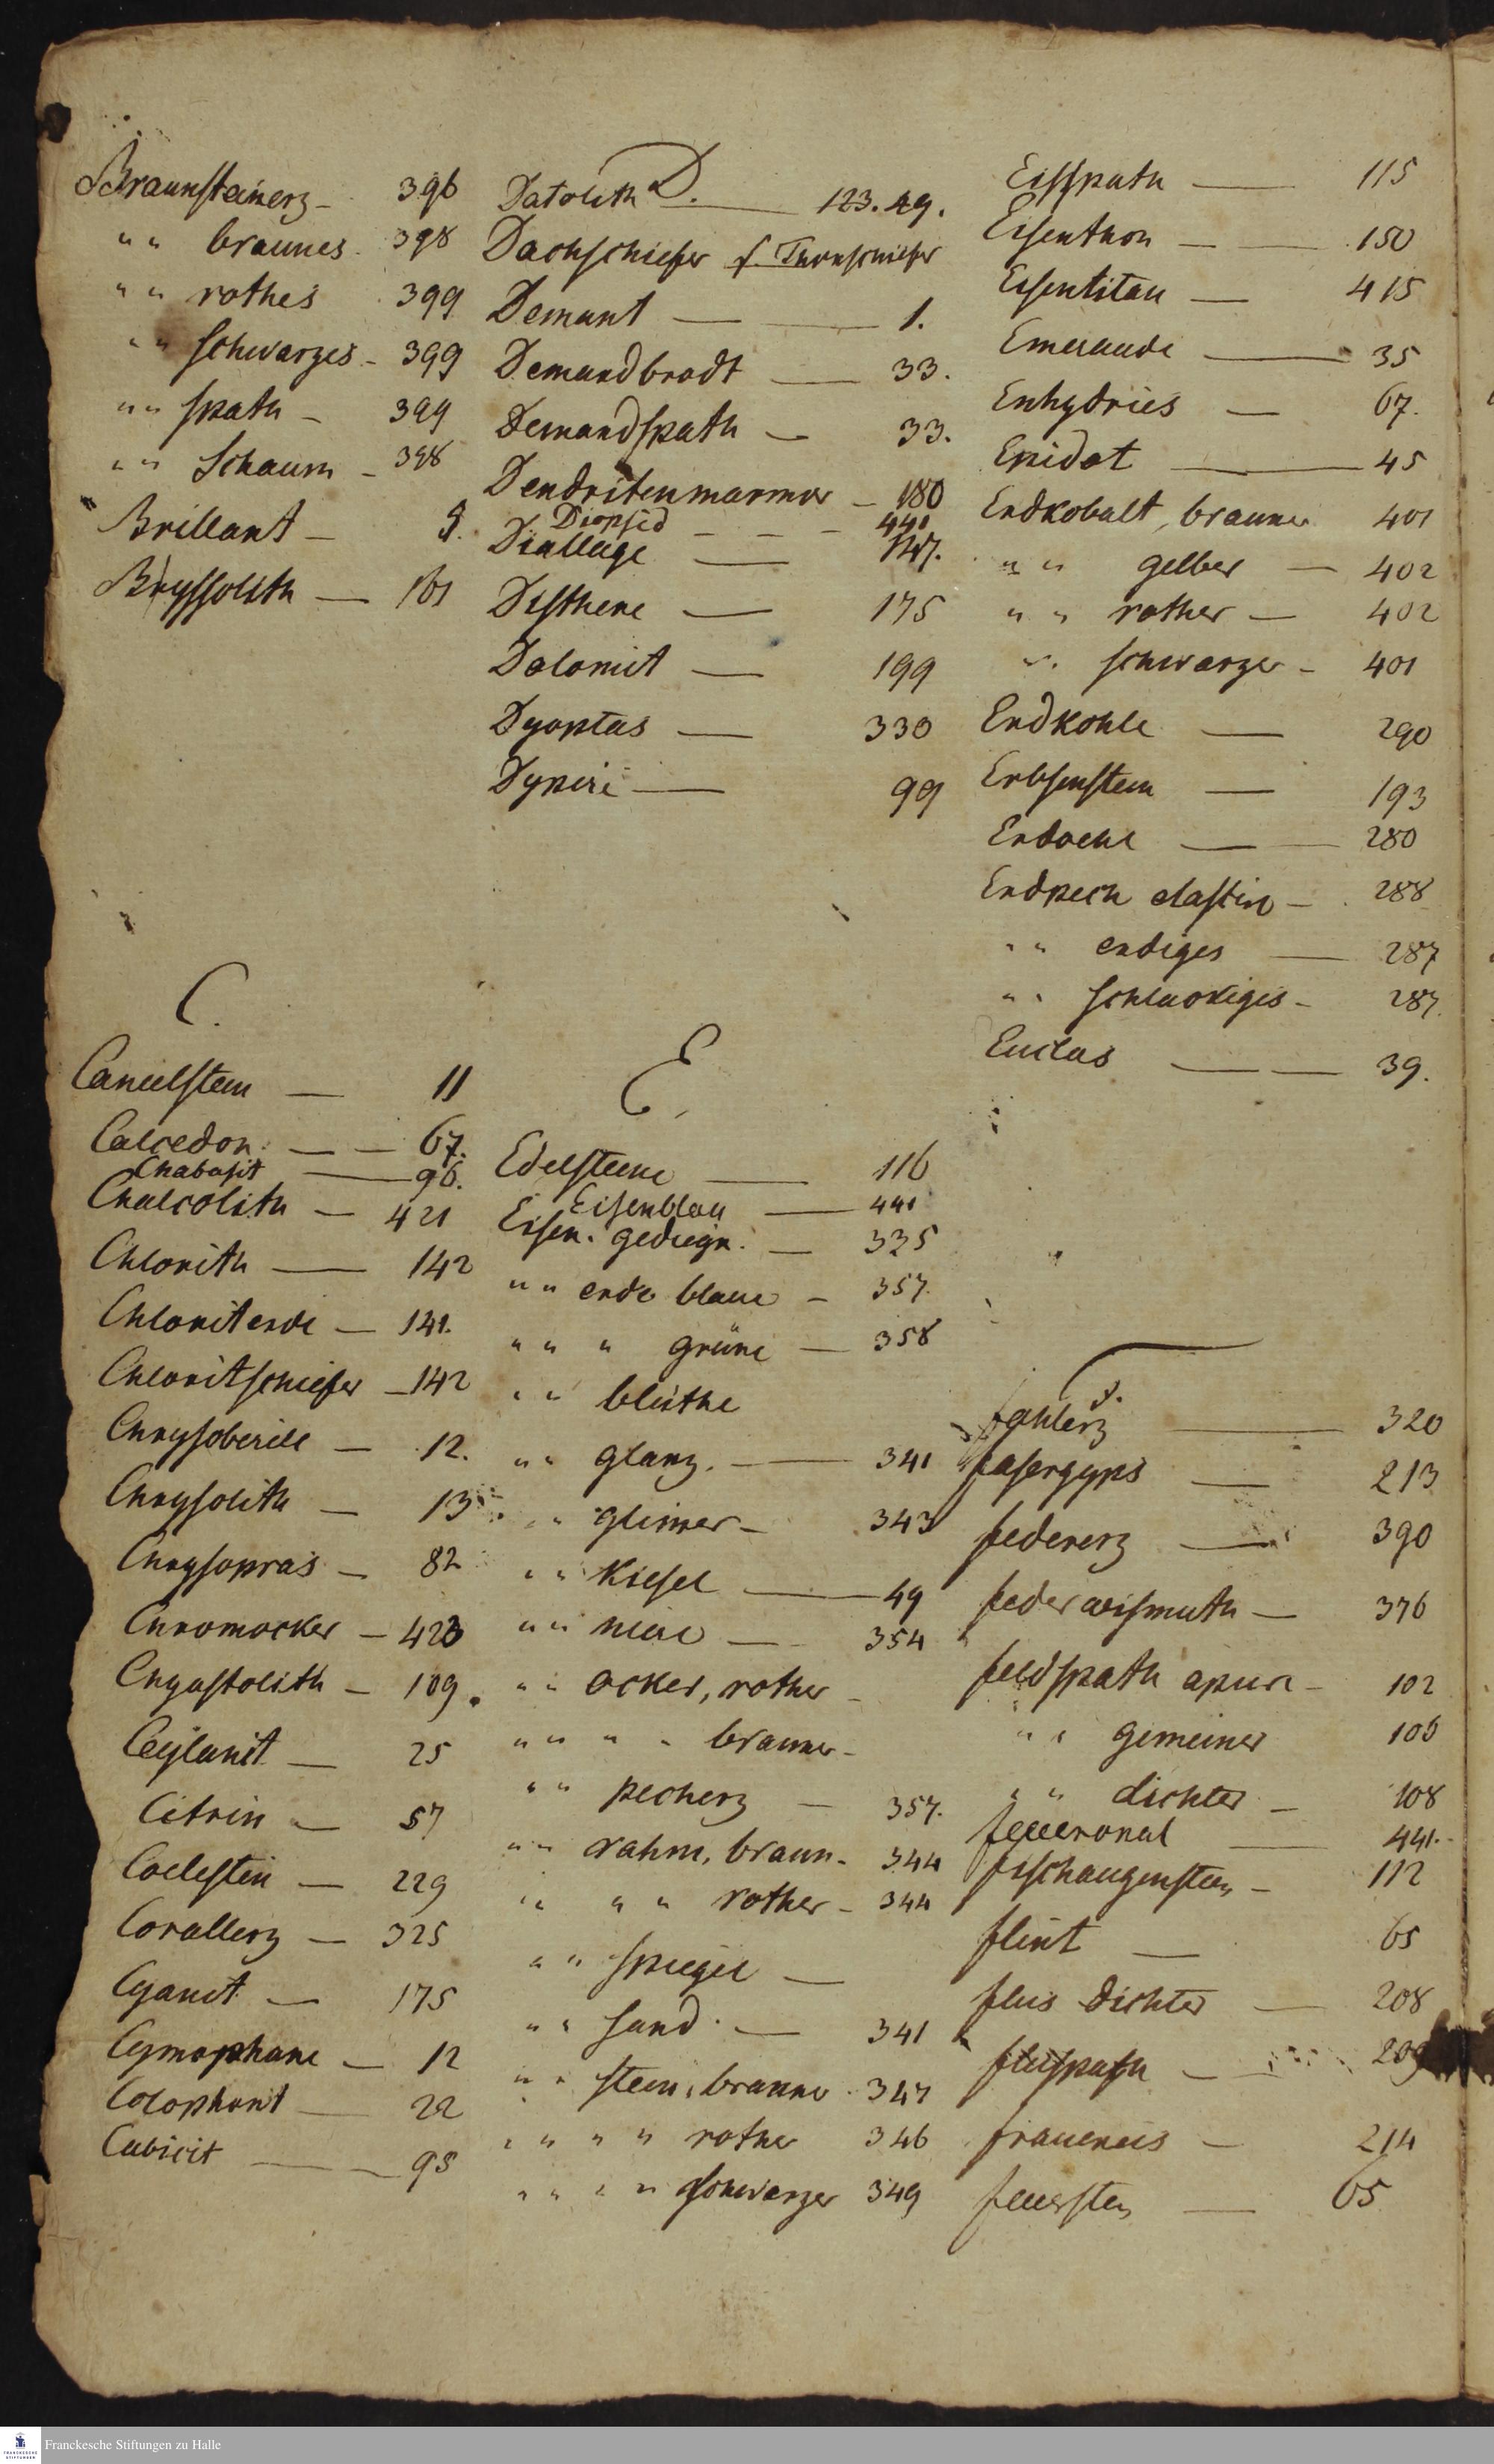 Braunsteinerz - 396
" " braunes. 398
" " rothes 399
" " schwarzes - 399
" " spath - 399
" " Schaum - 398
Brillant -
Bryssolith — 161
C.
Caneelstein — 11
Calcedon — — 67.
Chabasit — 96.
Chalcolith — 421
Chlorith — 142
Chloriterde — 141.
Chloritschiefer — 142
Chrysoberill — 12.
Chrysolith — 13
Chrysopras — 82
Chromocker — 423
Chyastolith — 109.
Ceylanit — 25
Citrin — 57
Coelestin — 229
Corallerz — 325
Cyanit — 175
Cymophane — 12
Colophonit — 22
Cubicit — 95
D.
Datolith — 123. 49.
Dachschiefer s. Thonschiefer
Demant — — 1.
Demandbrodt — 33.
Demandspath — 33.
Dendritenmarmor — 180
Diopsid - - - 441
Diallage — 147.
Disthene — 175
Dolomit — 199
Dyoptas — 330
Dypire — 99
E.
Edelsteine — 116
Eisenblau — 441
Eisen. gediegn. — 335
" " erde blaue — 357.
" " " grüne — 358
" " blüthe
" " glanz. — 341
" " glimer — 343
" " Kiesel — 49
" " niere — 354
" " ocker, rother -
" " " " brauner -
" " pecherz — 357.
" " rahm, braun - 344
" " " rother - 344
" " spiegel —
" " sand. — 341
" " stein, brauner. 347
" " " " rother 346
" " " " schwarzer 349
Eisspath — 115
Eisenthon — 150
Eisentitan — 415
Emeraude — 35
Enhydries — 67.
Epidot — 45
Erdkobalt, brauner 401
" " gelber — 402
" " rother — 402
" " schwarzer - 401
Erdkohle — 290
Erbsenstein — 193
— 280
Erdpech elastisch — 288
" " erdiges — 287
" " schlackiges - 287.
Euclas — — 39.
F.
fahlerz — 320
fasergyps — 213
federerz — 390
federwismuth — 376
feldspath apyre - 102
" " gemeiner 106
" " dichter — 108
feueropal — 441.
fischaugenstein - 112
flint — 65
flus dichter — 208
fluspath — 209
fraueneis — 214
feuerstein — 65
Franckesche Stiftungen zu Halle